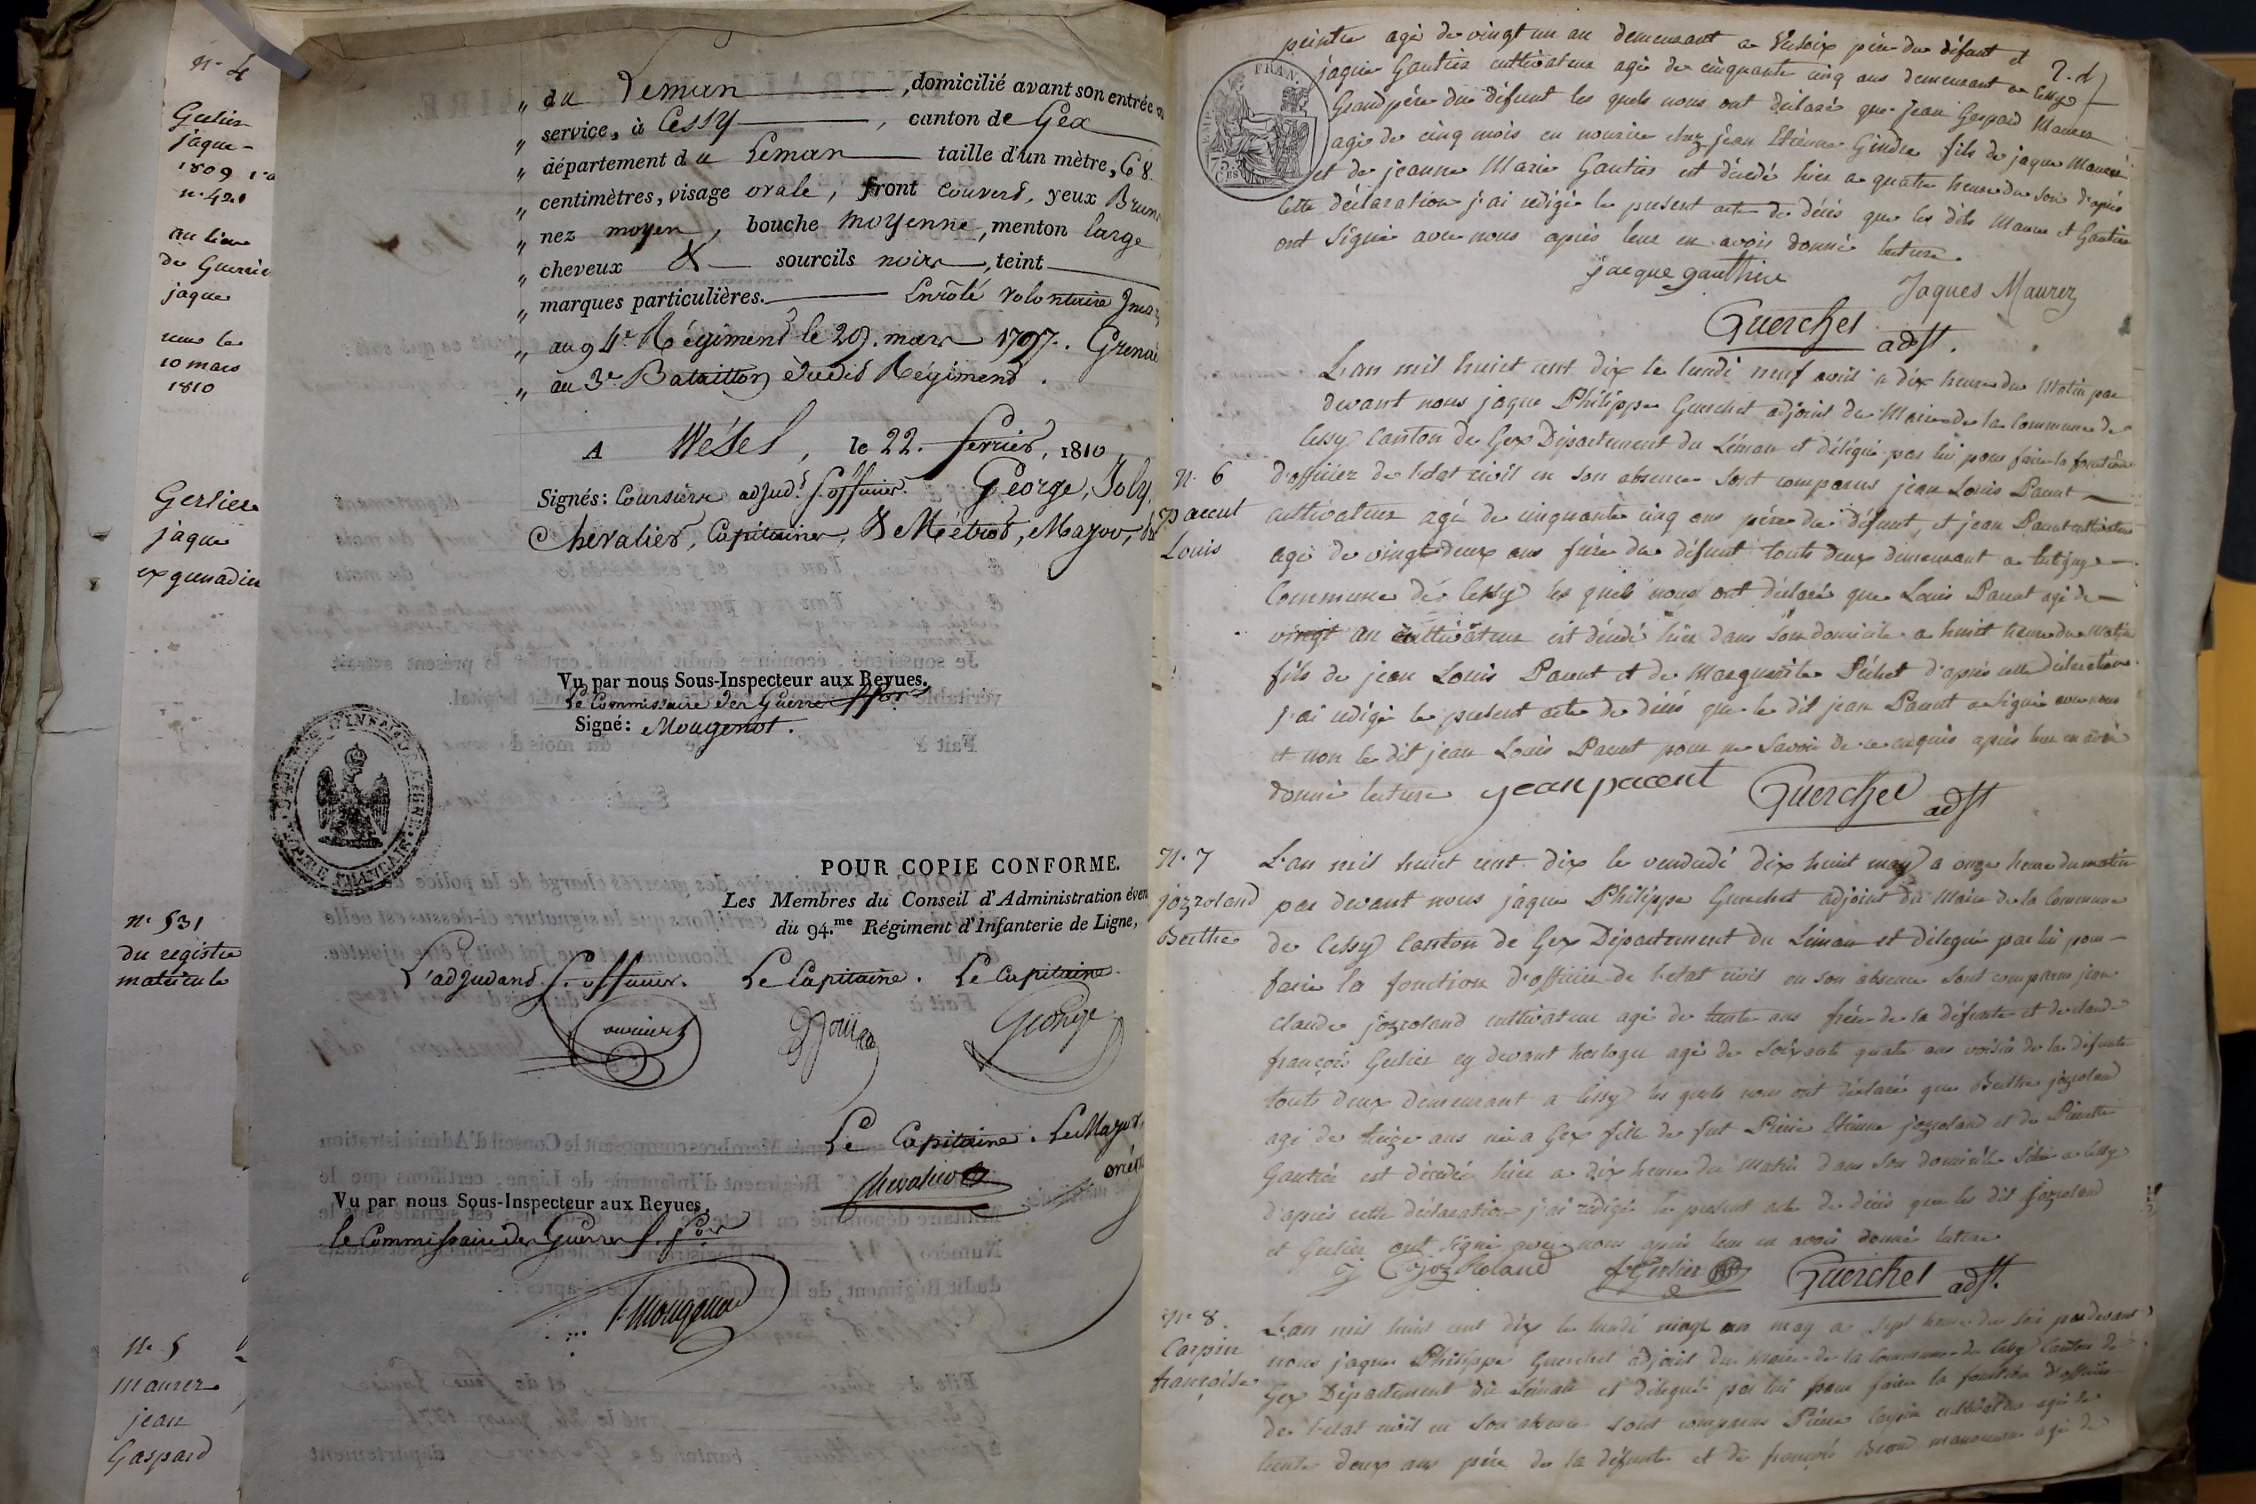 n. 4
Gerlier
jaque
1809
n. 421
au lieu
de Guerrier
jaque
reçu le
10 mars
1810
Gerlier
jaque
ex grenadier
n. 531
du registre
matricule
n. 5
maurer
jean
Gaspard
„ du Leman, domicilié avant son entrée au
„ service, à Cessy, canton de Gex
„ département du Leman taille d'un mètre, 68
„ centimètres, visage ovale, front couvert, yeux Bruns
„ nez moyen, bouche moyenne, menton large
„ cheveux & sourcils noirs, teint
„ marques particulières. Enrôlé volontaire
„ au 94e Régiment le 29. mars 1797. Grenad
„ au 3e Bataillon dudit Régiment.
A Wésel, le 22. fevrier, 1810
Signés: Coursiere adjudt s. officier. George, Joly,
Chevalier, Capitaines, & Métrot, Mayor,
Vu par nous Sous-Inspecteur aux Revues.
Le Commissaire des Guerres
Signé: Mougenot.
POUR COPIE CONFORME.
Les Membres du Conseil d'Administration éven
du 94.me Régiment d'Infanterie de Ligne,
L'adjudant s. officier. Le Capitaine. Le Capitaine.
George
Le Capitaine. Le Mayor,
Chevalier
Vu par nous Sous-Inspecteur aux Revues,
le Commissaire des Guerres
Mougenot
peintre agé de vingt un an demeurant a Versoix père du défunt et
jaque Gautier cultivateur agé de cinquante cinq ans demeurant a Cessy
Grandpére du défunt les quels nous ont déclaré que Jean Gaspard Maurer
agé de cinq mois en nourice chez jean Etienne Gindre fils de jaque Maurer
et de jeanne Marie Gautier est décédé hier a quatre heure du soir d'après
cette déclaration j'ai rédigé le present acte de décés que les dits Maurer et Gautier
ont signé avec nous après leur en avoir donné lecture.
jacque gauthier
Jaques Maurer
Guerchet adjt.
L'an mil huit cent dix le lundi neuf avril a dix heure du Matin par
devant nous jaque Philippe Guerchet adjoint du Maire de la Commune de
Cessy Canton de Gex Département du Léman et délégué par lui pour faire la fonction
n. 6
d'officier de l'etat civil en son absence sont comparus jean Louis Pacut
Pacut
cultivateur agé de cinquante cinq ans père du défunt, et jean Pacut cultivateur
Louis
agé de vingt deux ans frère du défunt touts deux demeurant a
Commune de Cessy les quels nous ont déclaré que Louis Pacut agé de
vingt an cultivateur est décédé hier dans son domicile a huit heure du matin
fils de jean Louis Pacut et de Marguerite Péchet d'après cette déclaration
j'ai rédigé le present acte de décés que le dit jean Pacut a signé avec nous
et non le dit jean Louis Pacut pour ne savoir de ce enquis après leur en avoir
donné lecture jean pacent Guerchet adjt
n. 7
L'an mil huit cent dix le vendredi dix huit may a onze heure du matin
jozroland
par devant nous jaque Philippe Guerchet adjoint du Maire de la Commune
Berthe
de Cessy Canton de Gex Département du Léman et délégué par lui pour
faire la fonction d'officier de l'etat civil en son absence sont comparus jean
claude jozroland cultivateur agé de trente ans frère de la défunte et de claude
françois Gerlier cy devant horloger agé de soixante quatre ans voisin de la défunte
touts deux demeurant a Cessy les quels nous ont déclaré que Berthe jozroland
agé de treize ans née a Gex fille de fut Pierre Etienne jozroland et de Pernette
Gautier est décédée hier a dix heure du matin dans son domicile a Cessy
d'après cette déclaration j'ai rédigé le present acte de décés que les dit jozroland
et Gerlier ont signé avec nous après leur en avoir donné lecture
j C joz Roland f Gerlier Guerchet adjt.
n. 8.
L'an mil huit cent dix le lundi vingt un may a sept heure du soir par devant
Carpin
nous jaque Philippe Guerchet adjoint du Maire de la Commune de Cessy Canton de
françoise
Gex Département du Léman et délégué par lui pour faire la fonction d'officier
de l'etat civil en son absence sont comparus Pierre Carpin cultivateur agé de
trente deux ans père de la défunte et de françois manœuvre agé de